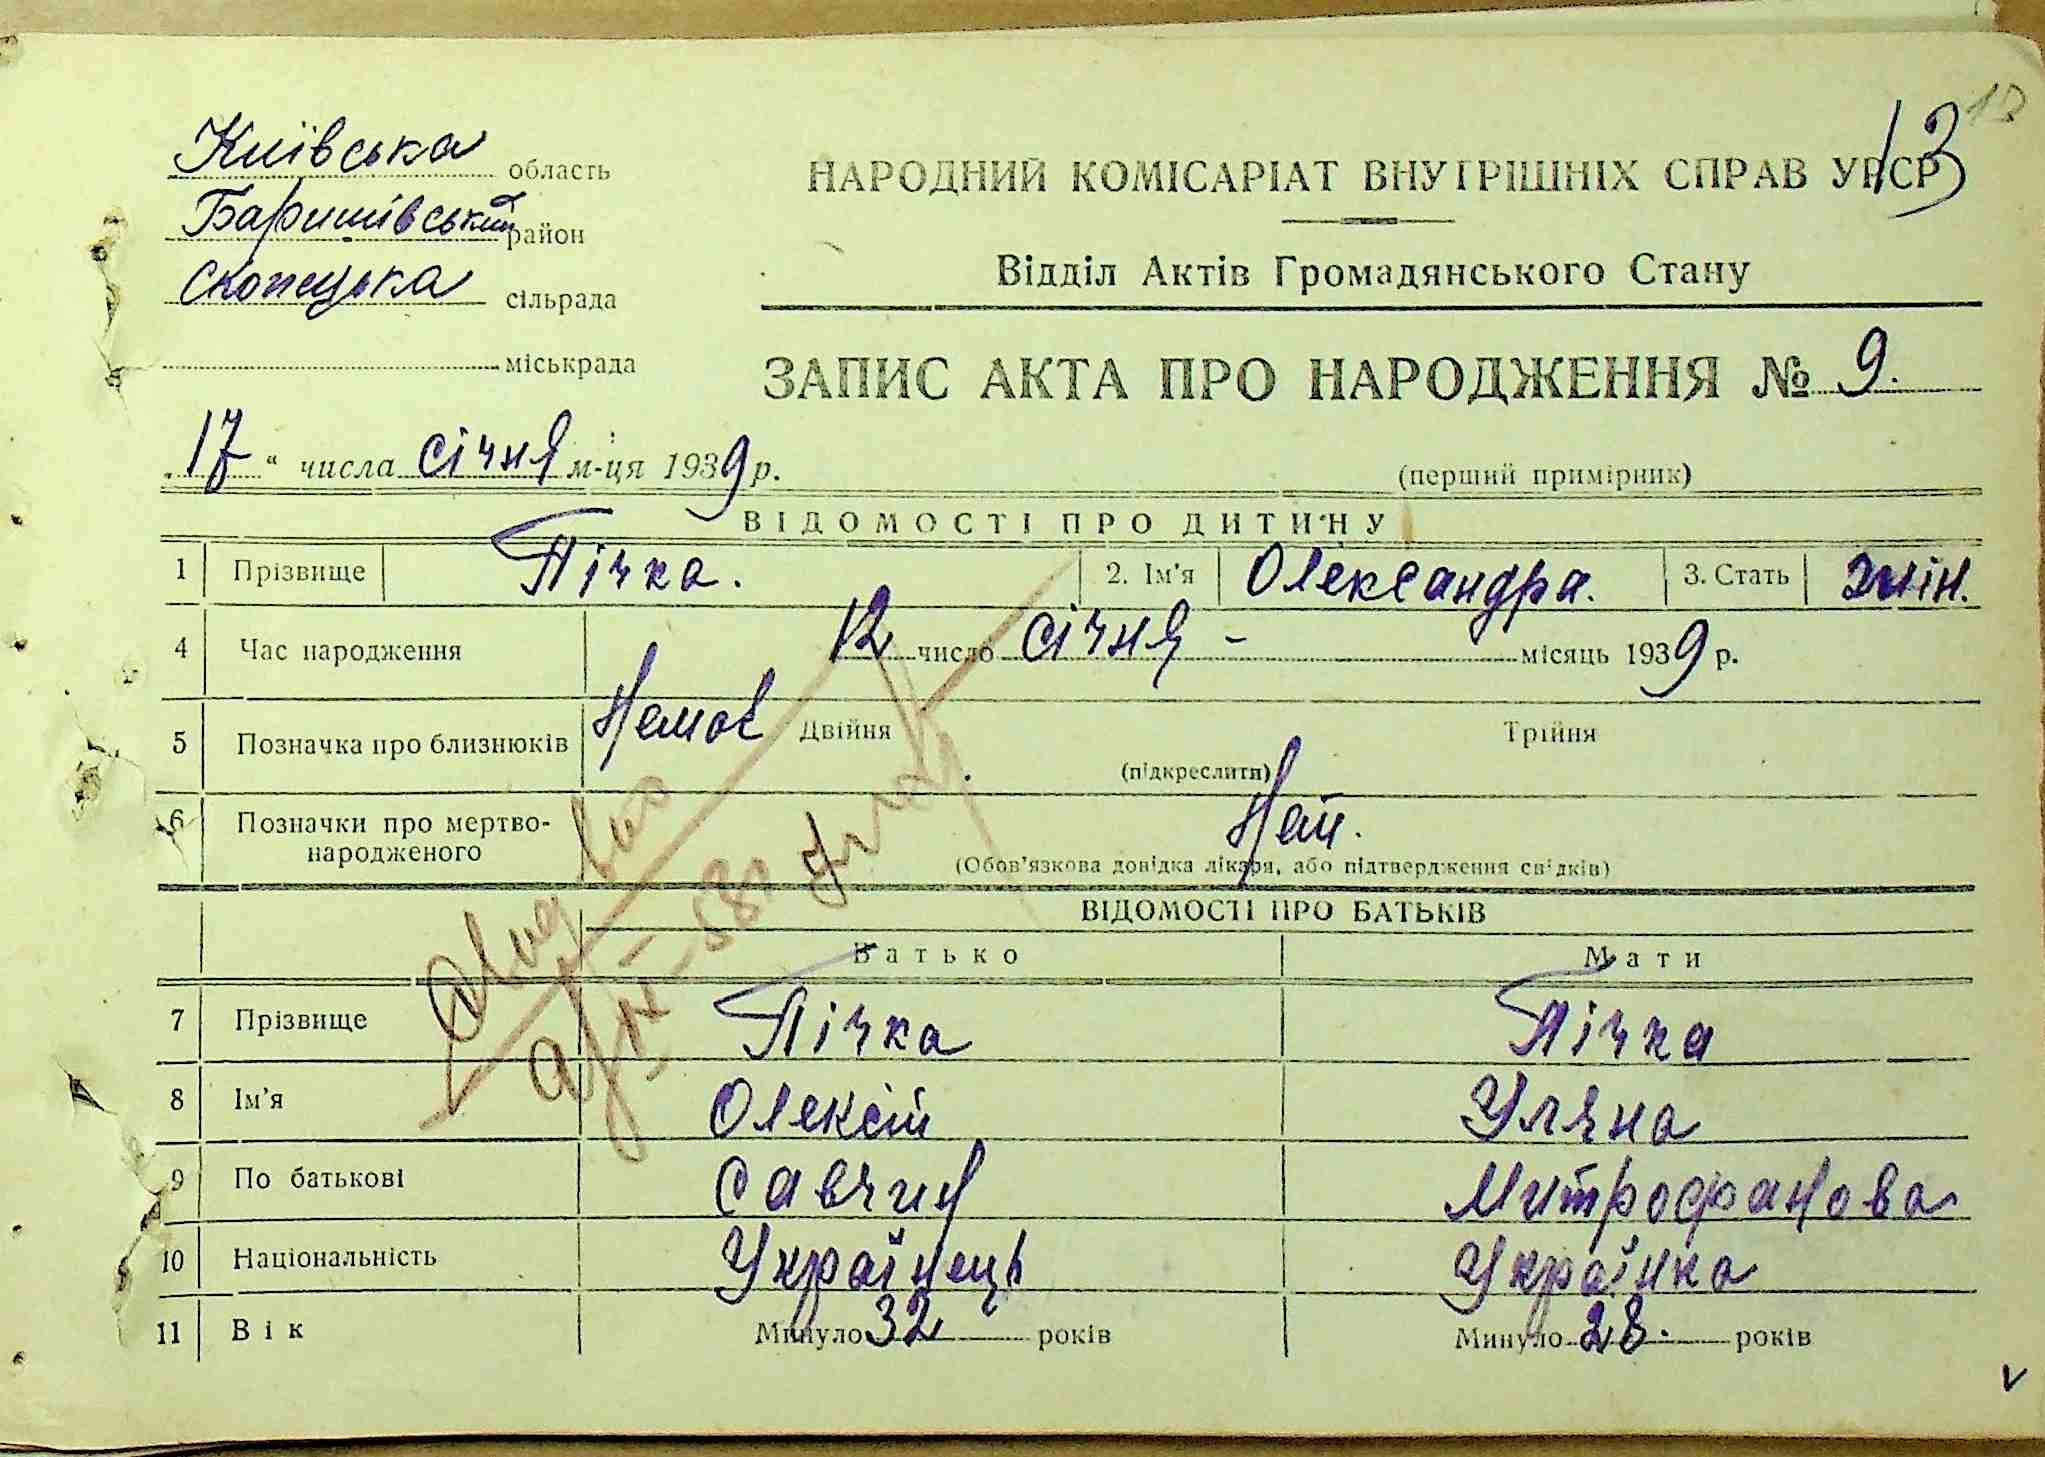 13
13
Київська область
Баришівський район
Скопецька сільрада
міськрада
НАРОДНИЙ КОМІСАРІАТ ВНУТРІШНІХ СПРАВ УРСР
Відділ Актів Громадянського Стану
ЗАПИС АКТА ПРО НАРОДЖЕННЯ № 9.
„17“ числа січня м-ця 1939 р.
(перший примірник)
ВІДОМОСТІ ПРО ДИТИНУ
1 Прізвище Пічка. 2. Ім'я Олександра. 3. Стать жін.
4 Час народження 12 число січня - місяць 1939 р.
5 Позначка про близнюків Двійня Трійня
(підкреслити)
6 Позначки про мертво-
народженого
(Обов'язкова довідка лікаря, або підтвердження свідків)
ВІДОМОСТІ ПРО БАТЬКІВ
Батько Мати
7 Прізвище Пічка Пічка
8 Ім'я Олексій Уляна
9 По батькові Савчин Митрофанова
10 Національність Українець Українка
11 Вік Минуло 32 років Минуло 28. років